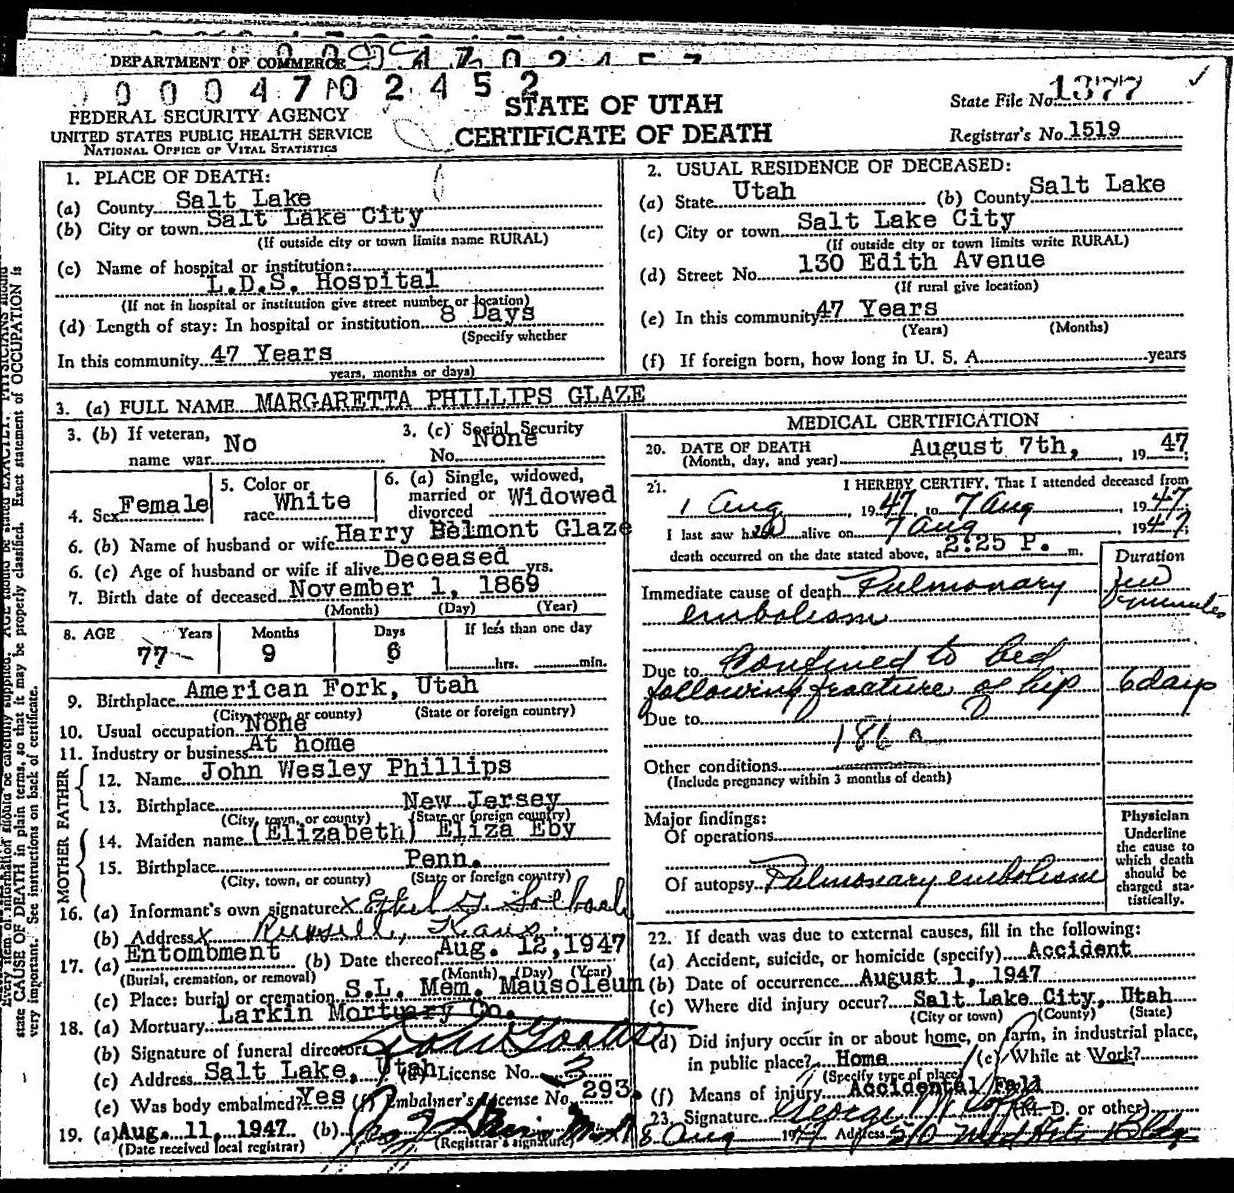 DEPARTMENT OF COMMERCE
0004702452
FEDERAL SECURITY AGENCY
UNITED STATES PUBLIC HEALTH SERVICE
NATIONAL OFFICE OF VITAL STATISTICS
STATE OF UTAH
CERTIFICATE OF DEATH
State File No. 1377
Registrar's No. 1519
1. PLACE OF DEATH:
(a) County Salt Lake
(b) City or town Salt Lake City
(If outside city or town limits name RURAL)
(c) Name of hospital or institution:
L.D.S. Hospital
(If not in hospital or institution give street number or location)
(d) Length of stay: In hospital or institution 8 Days
(Specify whether
In this community 47 Years
years, months or days)
2. USUAL RESIDENCE OF DECEASED:
(a) State Utah (b) County Salt Lake
(c) City or town Salt Lake City
(If outside city or town limits write RURAL)
(d) Street No. 130 Edith Avenue
(If rural give location)
(e) In this community 47 Years
(Years) (Months)
(f) If foreign born, how long in U. S. A. years
3. (a) FULL NAME MARGARETTA PHILLIPS GLAZE
3. (b) If veteran, name war No
3. (c) Social Security No. None
4. Sex Female
5. Color or race White
6. (a) Single, widowed, married or divorced Widowed
6. (b) Name of husband or wife Harry Belmont Glaze
6. (c) Age of husband or wife if alive Deceased yrs.
7. Birth date of deceased November 1, 1869
(Month) (Day) (Year)
8. AGE Years Months Days If less than one day
77 9 6 hrs. min.
9. Birthplace American Fork, Utah
(City, town, or county) (State or foreign country)
10. Usual occupation None
11. Industry or business At home
FATHER
12. Name John Wesley Phillips
13. Birthplace New Jersey
(City, town, or county) (State or foreign country)
MOTHER
14. Maiden name (Elizabeth) Eliza Eby
15. Birthplace Penn.
(City, town, or county) (State or foreign country)
16. (a) Informant's own signature x Ethel G.
(b) Address x Russell, Kans.
17. (a) Entombment (b) Date thereof Aug. 12, 1947
(Burial, cremation, or removal) (Month) (Day) (Year)
(c) Place: burial or cremation S.L. Mem. Mausoleum
18. (a) Mortuary Larkin Mortuary Co.
(b) Signature of funeral director
(c) Address Salt Lake, Utah (d) License No. 3
(e) Was body embalmed? Yes (f) Embalmer's License No. 293.
19. (a) Aug. 11, 1947 (b)
(Date received local registrar) (Registrar's signature)
MEDICAL CERTIFICATION
20. DATE OF DEATH August 7th, 1947
(Month, day, and year)
21. I HEREBY CERTIFY, That I attended deceased from
1 Aug, 1947, to 7 Aug, 1947
I last saw her alive on 7 Aug 1947
death occurred on the date stated above, at 2:25 P. m.
Duration
Immediate cause of death Pulmonary few
embolism minutes
Due to Confined to bed
following fracture of hip 6 days
Due to
186 a
Other conditions
(Include pregnancy within 3 months of death)
Major findings:
Of operations
Of autopsy Pulmonary embolism
Physician
Underline
the cause to
which death
should be
charged sta-
tistically.
22. If death was due to external causes, fill in the following:
(a) Accident, suicide, or homicide (specify) Accident
(b) Date of occurrence August 1, 1947
(c) Where did injury occur? Salt Lake City, Utah
(City or town) (County) (State)
(d) Did injury occur in or about home, on farm, in industrial place,
in public place? Home (e) While at Work?
(Specify type of place)
(f) Means of injury Accidental Fall
23. Signature George (M. D. or other)
8 Aug 1947 Address 510 Med Arts Bldg
state CAUSE OF DEATH in plain terms, so that it may be properly classified. Exact statement of OCCUPATION is
very important. See instructions on back of certificate.